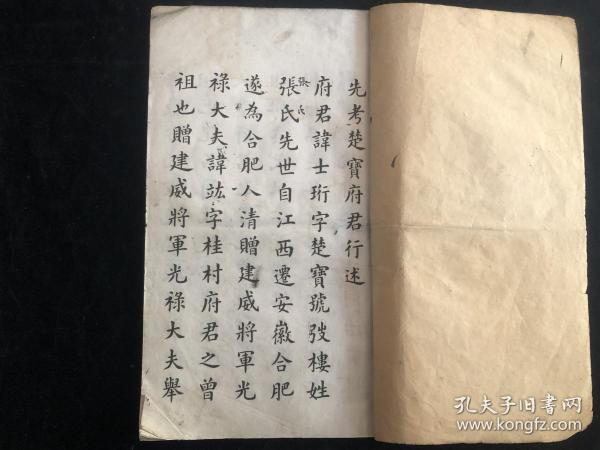 先考楚寶府君行述
府君諱士珩字楚寶號弢樓姓
張氏
張氏先世自江西遷安徽合肥
遂為合肥人清贈建威將軍光
祿大夫諱竑字桂村府君之曾
祖也贈建威將軍光祿大夫舉
孔夫子旧书网
www.kongfz.com